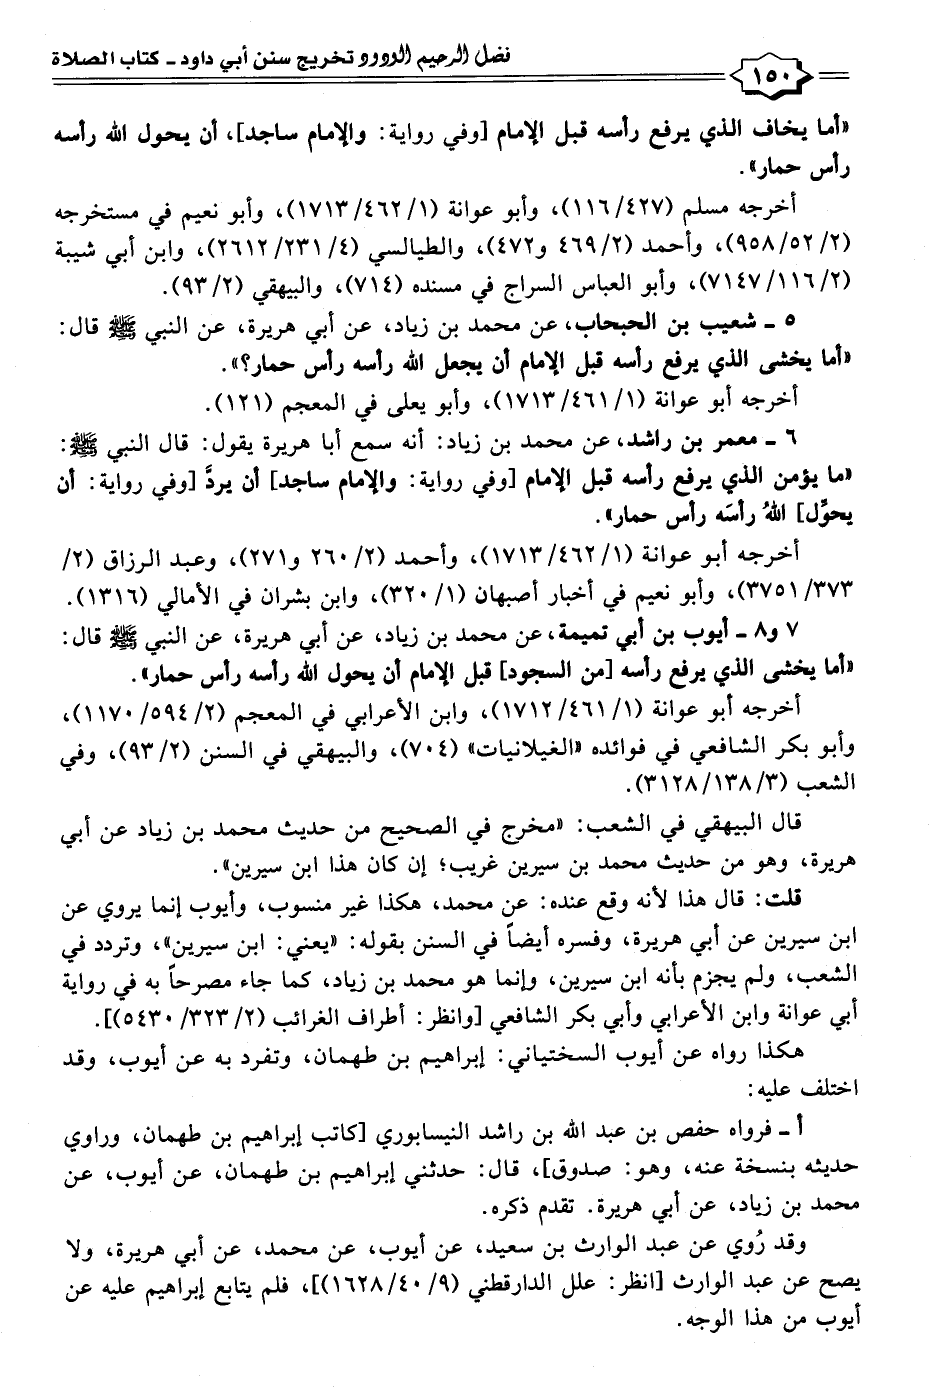 ١٥٠
فضل الرحيم الودود تخريج سنن أبي داود ـ كتاب الصلاة
«أما يخاف الذي يرفع رأسه قبل الإمام [وفي رواية: والإمام ساجد]، أن يحول الله رأسه
رأس حمار».
أخرجه مسلم (١١٦/٤٢٧)، وأبو عوانة (١٧١٣/٤٦٢/١)، وأبو نعيم في مستخرجه
(٩٥٨/٥٢/٢)، وأحمد (٤٦٩/٢ و٤٧٢)، والطيالسي (٢٦١٢/٢٣١/٤)، وابن أبي شيبة
(٧١٤٧/١١٦/٢)، وأبو العباس السراج في مسنده (٧١٤)، والبيهقي (٩٣/٢).
٥ ـ شعيب بن الحبحاب، عن محمد بن زياد، عن أبي هريرة، عن النبي ﷺ قال:
«أما يخشى الذي يرفع رأسه قبل الإمام أن يجعل الله رأسه رأس حمار؟».
أخرجه أبو عوانة (١٧١٣/٤٦١/١)، وأبو يعلى في المعجم (١٢١).
٦ ـ معمر بن راشد، عن محمد بن زياد: أنه سمع أبا هريرة يقول: قال النبي ﷺ:
«ما يؤمن الذي يرفع رأسه قبل الإمام [وفي رواية: والإمام ساجد] أن يردَّ [وفي رواية: أن
يحوِّل] اللهُ رأسَه رأس حمار».
أخرجه أبو عوانة (١٧١٣/٤٦٢/١)، وأحمد (٢٦٠/٢ و٢٧١)، وعبد الرزاق (٢/
٣٧٥١/٣٧٣)، وأبو نعيم في أخبار أصبهان (٣٢٠/١)، وابن بشران في الأمالي (١٣١٦).
٧ و٨ ـ أيوب بن أبي تميمة، عن محمد بن زياد، عن أبي هريرة، عن النبي ﷺ قال:
«أما يخشى الذي يرفع رأسه [من السجود] قبل الإمام أن يحول الله رأسه رأس حمار».
أخرجه أبو عوانة (١٧١٢/٤٦١/١)، وابن الأعرابي في المعجم (١١٧٠/٥٩٤/٢)،
وأبو بكر الشافعي في فوائده «الغيلانيات» (٧٠٤)، والبيهقي في السنن (٩٣/٢)، وفي
الشعب (٣١٢٨/١٣٨/٣).
قال البيهقي في الشعب: «مخرج في الصحيح من حديث محمد بن زياد عن أبي
هريرة، وهو من حديث محمد بن سيرين غريب؛ إن كان هذا ابن سيرين».
قلت: قال هذا لأنه وقع عنده: عن محمد، هكذا غير منسوب، وأيوب إنما يروي عن
ابن سيرين عن أبي هريرة، وفسره أيضاً في السنن بقوله: «يعني: ابن سيرين»، وتردد في
الشعب، ولم يجزم بأنه ابن سيرين، وإنما هو محمد بن زياد، كما جاء مصرحاً به في رواية
أبي عوانة وابن الأعرابي وأبي بكر الشافعي [وانظر: أطراف الغرائب (٥٤٣٠/٣٢٣/٢)].
هكذا رواه عن أيوب السختياني: إبراهيم بن طهمان، وتفرد به عن أيوب، وقد
اختلف عليه:
أ ـ فرواه حفص بن عبد الله بن راشد النيسابوري [كاتب إبراهيم بن طهمان، وراوي
حديثه بنسخة عنه، وهو: صدوق]، قال: حدثني إبراهيم بن طهمان، عن أيوب، عن
محمد بن زياد، عن أبي هريرة. تقدم ذكره.
وقد رُوي عن عبد الوارث بن سعيد، عن أيوب، عن محمد، عن أبي هريرة، ولا
يصح عن عبد الوارث [انظر: علل الدارقطني (١٦٢٨/٤٠/٩)]، فلم يتابع إبراهيم عليه عن
أيوب من هذا الوجه.